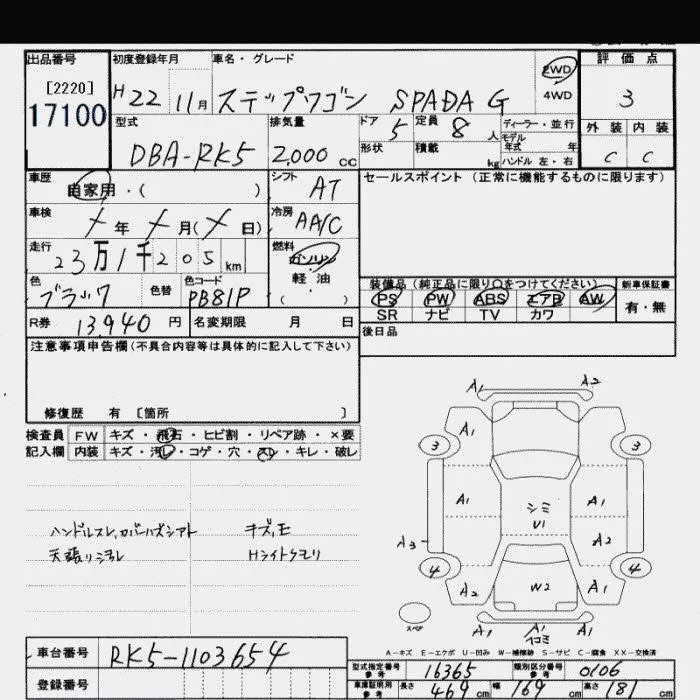 出品番号 初度登録年月 車名・グレード 2WD 評価点
[2220] H22 11月 ステップワゴン SPADA G 4WD 3
17100 型式 排気量 ドア 定員 ディーラー・並行 外装 内装
DBA-RK5 2,000 cc 5 8人 モデル年式 年 C C
形状 積載 kg ハンドル 左・右
車歴 自家用・( ) シフト AT セールスポイント (正常に機能するものに限ります)
車検 年 月( 日) 冷房 AA/C
走行 23万1千205km 燃料 ガソリン
軽・油
( )
色 ブラック 色替 色コード PB81P
装備品(純正品に限り○をつけてください) 新車保証書
PS PW ABS エアB AW 有・無
SR ナビ TV カワ
R券 13,940円 名変期限 月 日 後日品
注意事項申告欄(不具合内容等は具体的に記入して下さい)
修復歴 有 [箇所 ]
検査員 FW キズ・飛石・ヒビ割・リペア跡・×要
記入欄 内装 キズ・汚レ・コゲ・穴・スレ・キレ・破レ
ハンドルスレ,カバーハズシアト キズ,モ
天張リヨゴレ Hライトクモリ
A1 A2
3 A1 3
A1 シミ A1
A3 U1 A2
4 A2 W2 A1 4
スペア A1 A1 A1
ヨコミ
A-キズ E-エクボ U-凹み W-補修跡 S-サビ C-腐食 XX-交換済
車台番号 RK5-1103654
型式指定番号 参考 16365 類別区分番号 参考 0106
登録番号 車庫証明用 参考 長さ 469cm 幅 169cm 高さ 181cm